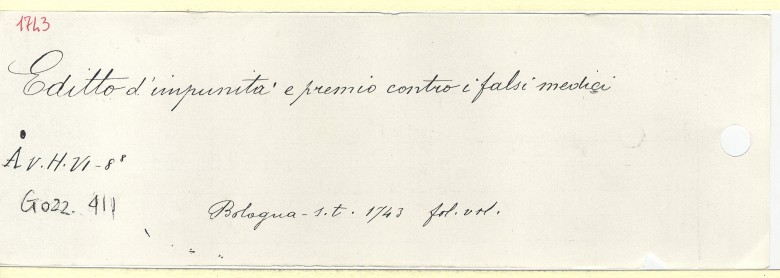 1743
Editto d'impunità e premio contro i falsi medici
A V. H. VI - 8⁸
Gozz. 411
Bologna - s. t. 1743 fol. vol.